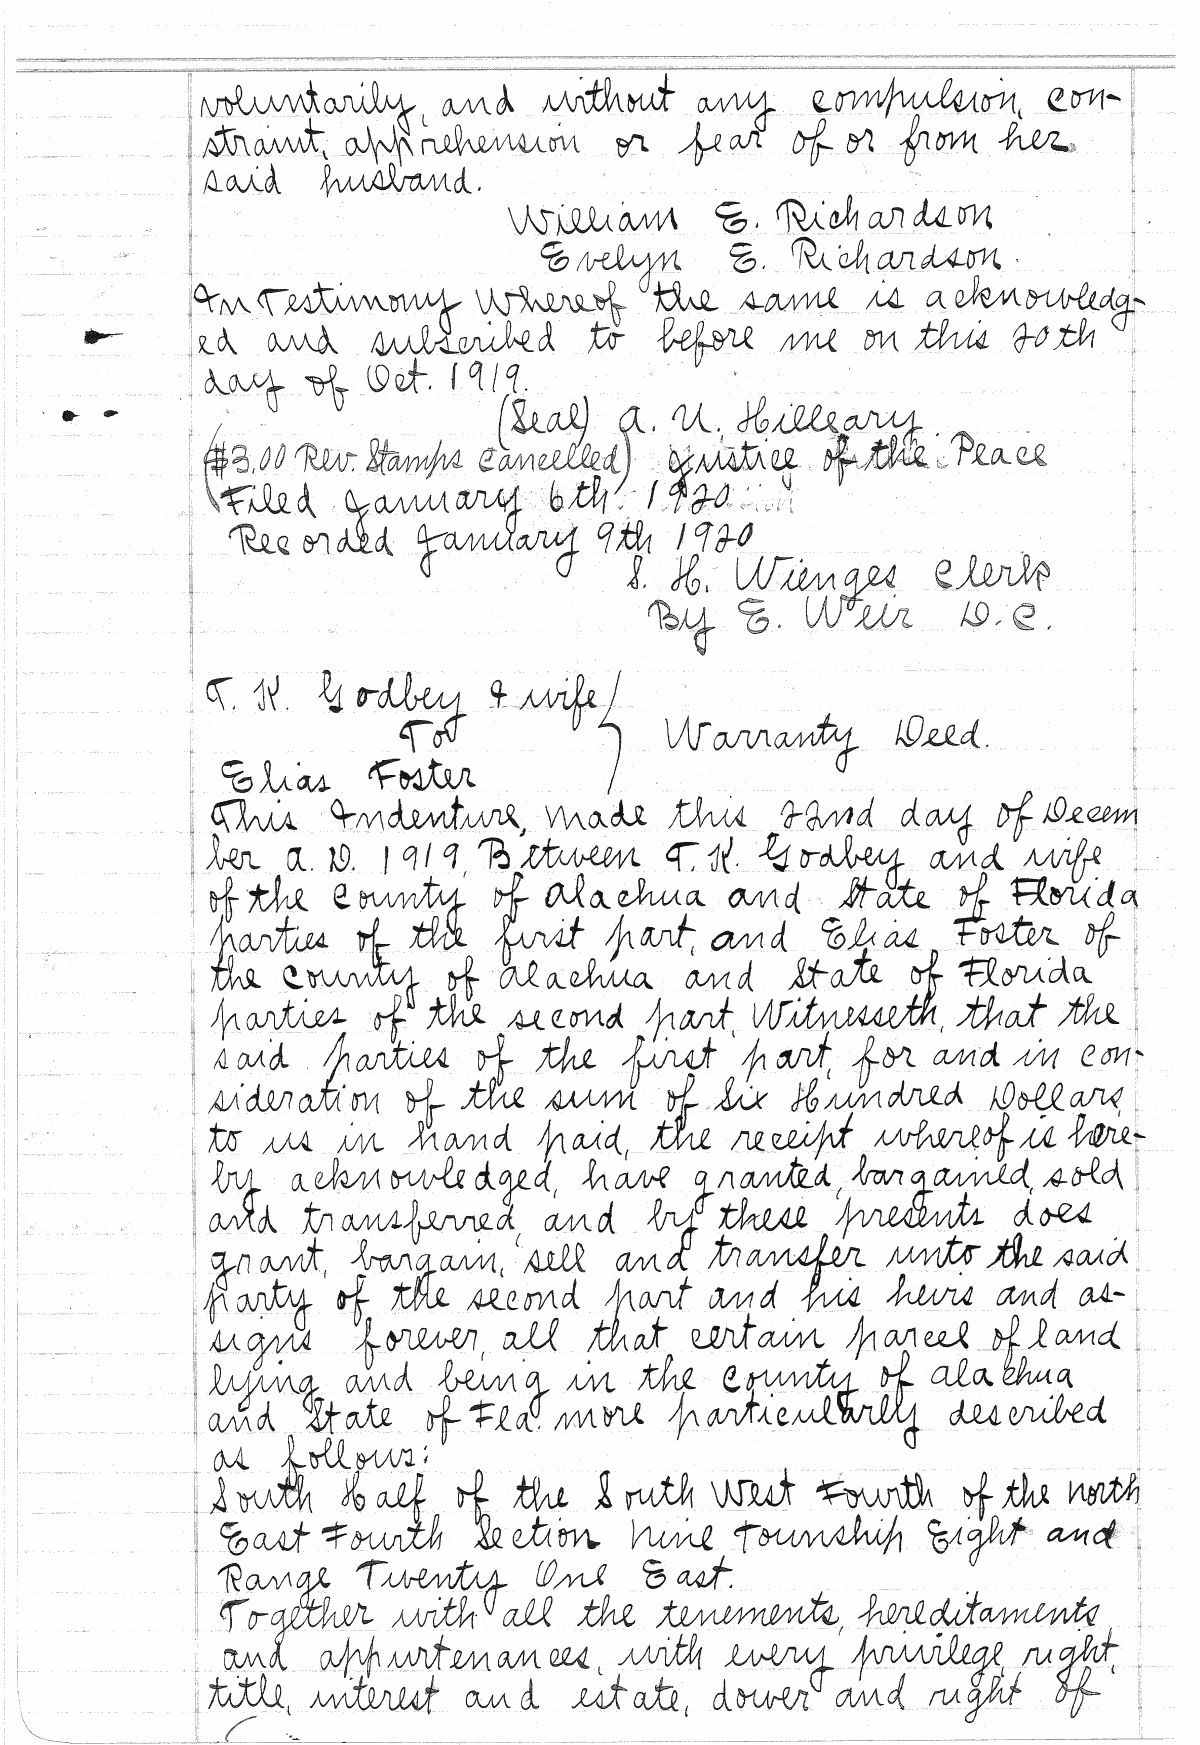 voluntarily, and without any compulsion, con-
straint, apprehension or fear of or from her
said husband.
William E. Richardson
Evelyn E. Richardson.
In Testimony Whereof the same is acknowledg-
ed and subscribed to before me on this 20th
day of Oct. 1919.
(Seal) A. U. Hilleary
($3.00 Rev. Stamps Cancelled) Justice of the Peace
Filed January 6th. 1920
Recorded January 9th 1920
S. H. Wienges Clerk
By E. Weir D.C.
T. K. Godbey & wife
To
Warranty Deed.
Elias Foster
This Indenture, made this 22nd day of Decem
ber A. D. 1919, Between T. K. Godbey and wife
of the County of Alachua and State of Florida
parties of the first part, and Elias Foster of
the County of Alachua and State of Florida
parties of the second part, Witnesseth, that the
said parties of the first part, for and in con-
sideration of the sum of Six Hundred Dollars,
to us in hand paid, the receipt whereof is here-
by acknowledged, have granted, bargained, sold
and transferred, and by these presents does
grant, bargain, sell and transfer unto the said
party of the second part and his heirs and as-
signs forever, all that certain parcel of land
lying and being in the County of Alachua
and State of Fla. more particularly described
as follows:
South Half of the South West Fourth of the North
East Fourth Section Nine Township Eight and
Range Twenty One East.
Together with all the tenements, hereditaments
and appurtenances, with every privilege, right,
title, interest and estate, dower and right of